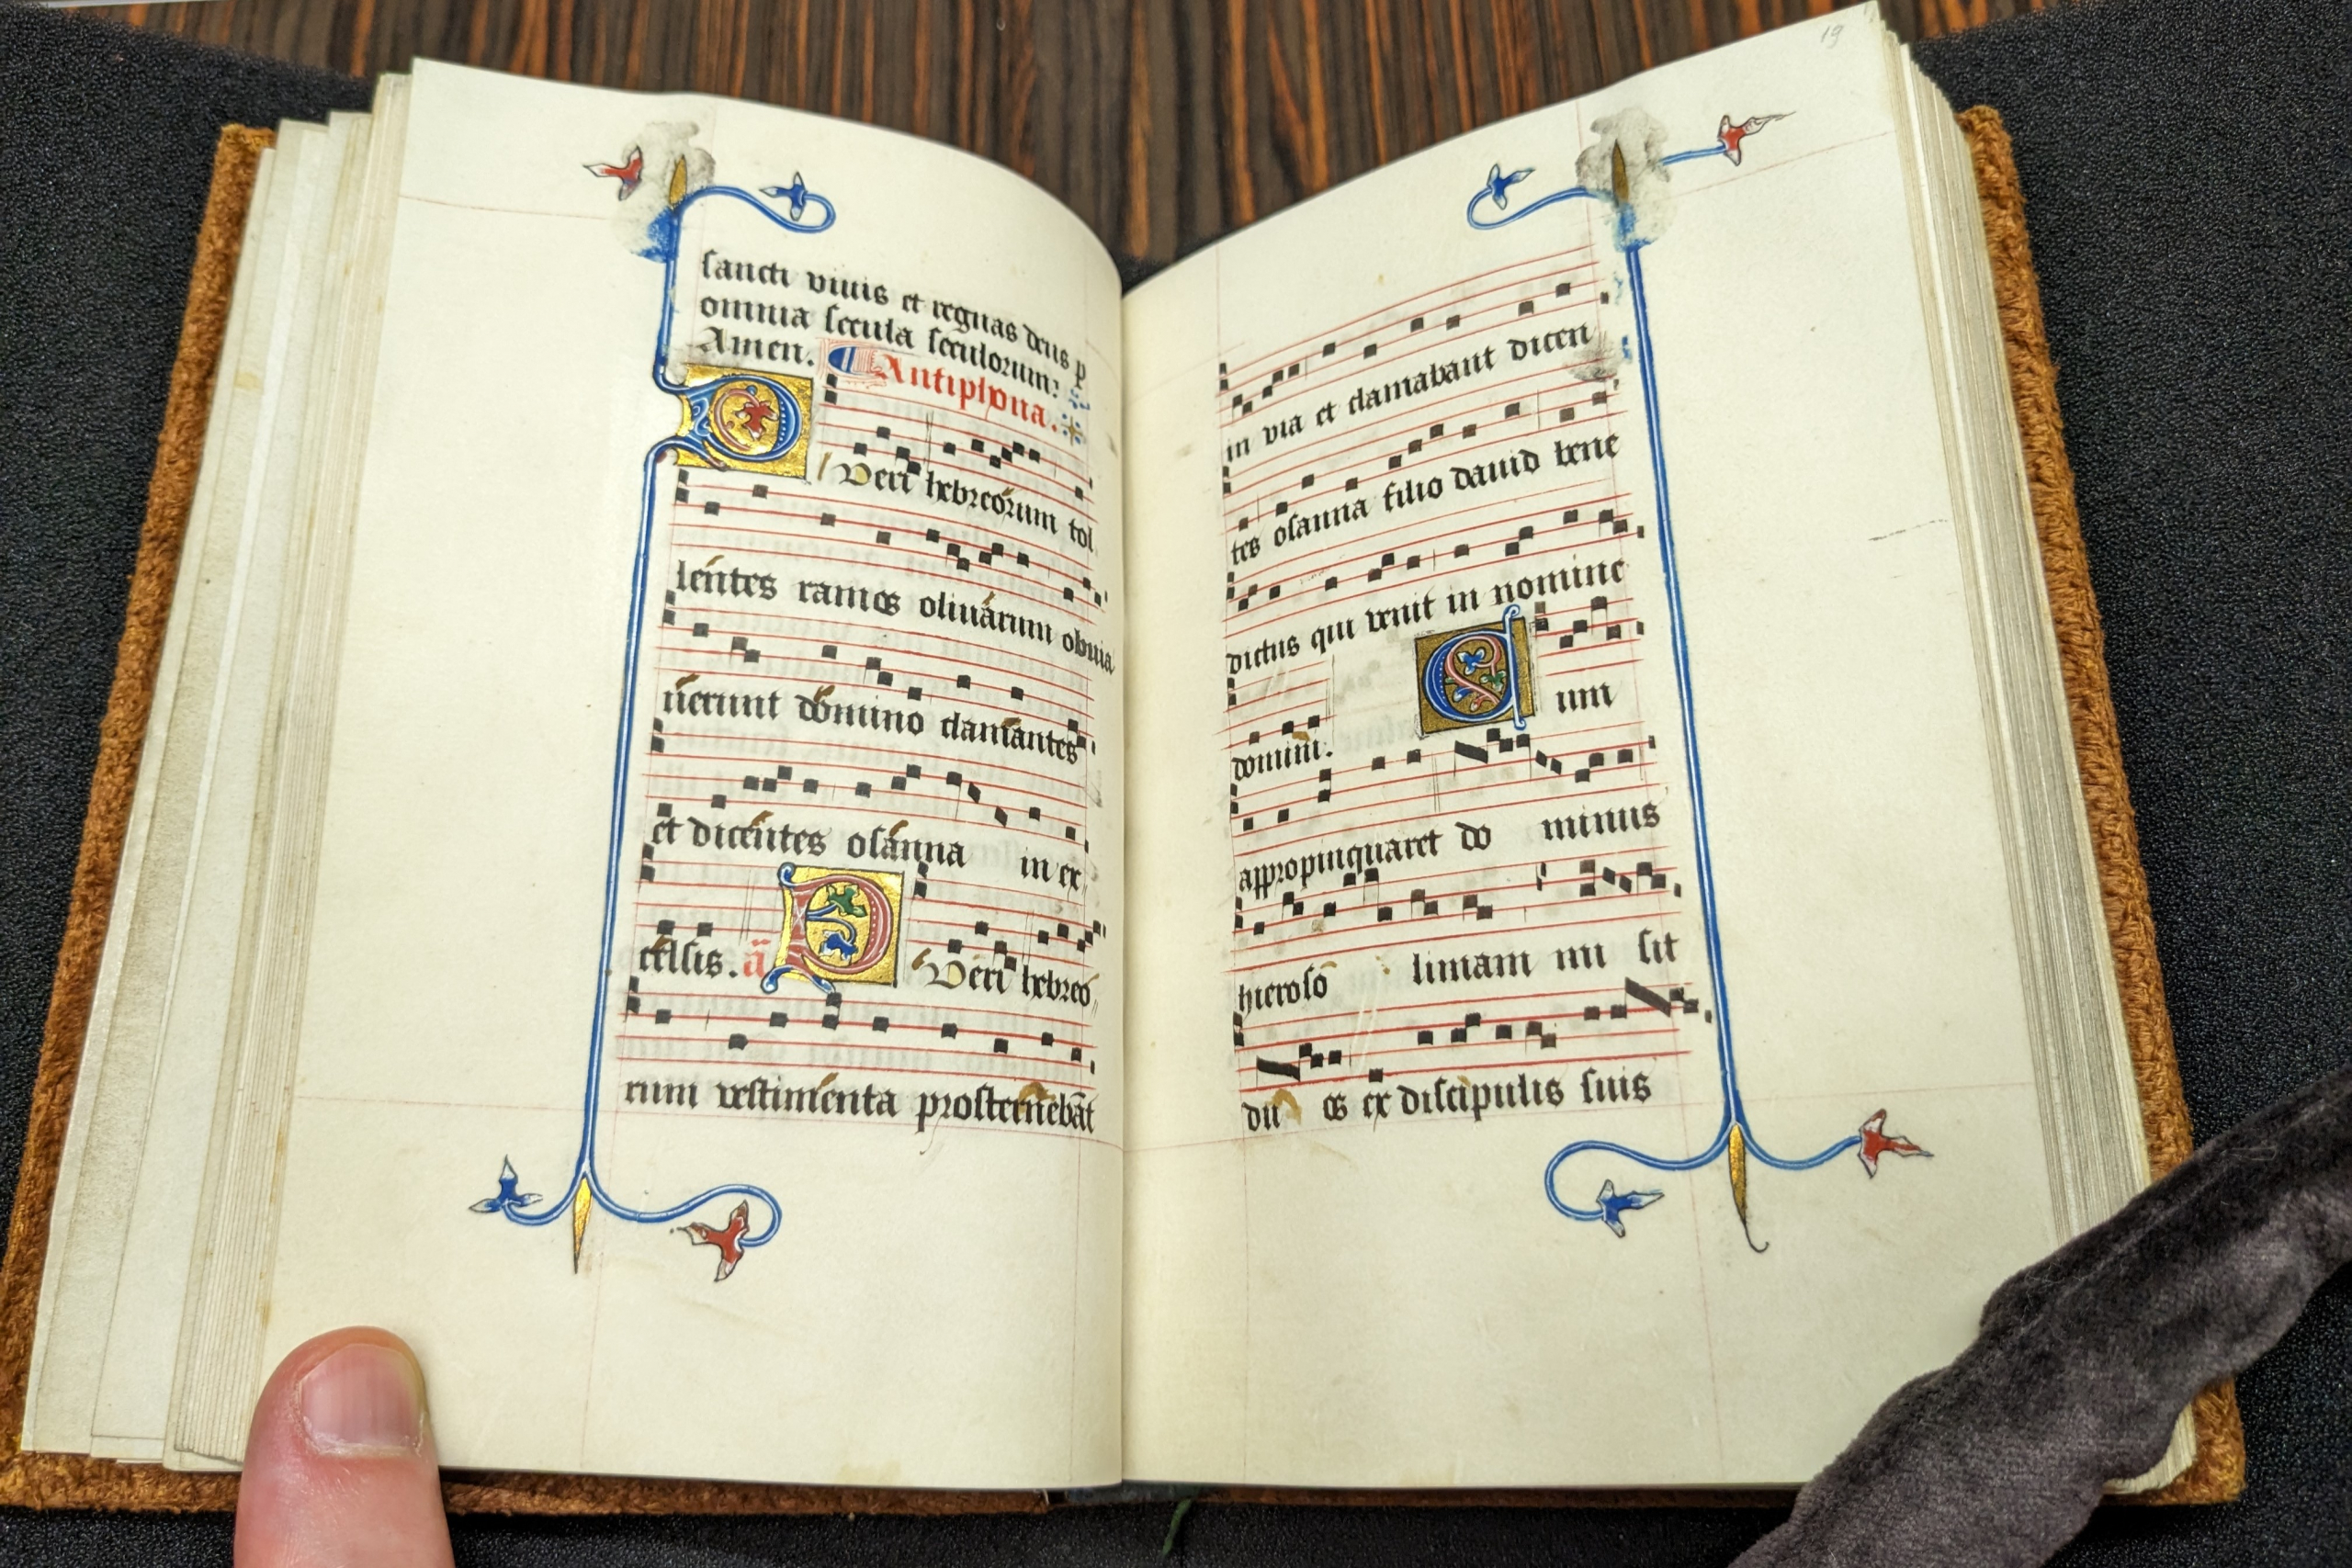 sancti viuis et regnas deus p
omnia secula seculorum:
Amen. Antiphona.
PUeri hebreórum tol
léntes ramos oliuárum obuia
uérunt dómino clamántes
et dicéntes osánna in ex
célsis. ā PUeri hebreó
rum vestiménta prosternébāt
19
in via et clamabant dicen
tes osanna filio dauid bene
dictus qui venit in nomine
domini. Cum
appropinquaret do minus
hieroso limam mi sit
du os ex discipulis suis